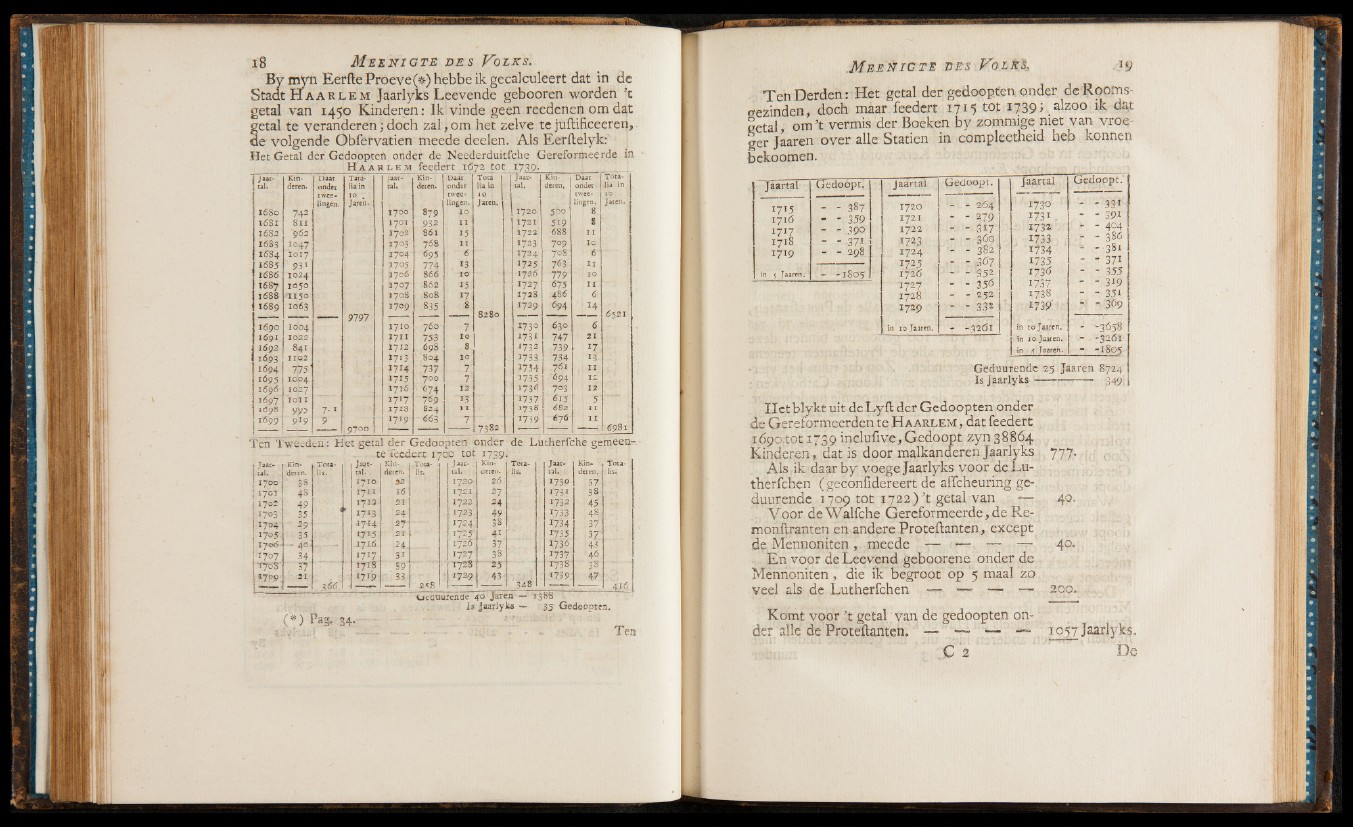 18 MEENIGTE DES VOLKS.
By myn Eerſte Proeve (*) hebbe ik gecalculeert dat in de
Stadt HAARLEM Jaarlyks Leevende gebooren worden 't
getal van 1450 Kinderen: Ik vinde geen reedenen om dat
getal te veranderen; doch zal, om het zelve te juſtificeeren,
de volgende Obſervatien meede deelen. Als Eerſtelyk:
Het Getal der Gedoopten onder de Neederduitſche Gereformeerde in
HAARLEM ſeedert 1672 tot 1739.
Jaar-tal. Kin-deren. Daar onder twee-lingen. Tota-lia in 10 Jaren. Jaar-tal. Kin-deren. Daar onder twee-lingen. Tota lia in 10 Jaren. Jaar-tal. Kin-deren. Daar onder twee-lingen. Tota-lia in 10 Jaren.
1680 742 1700 879 10 1720 500 8
1681 811 1701 932 11 1721 519 8
1682 962 1702 861 15 1722 688 11
1683 1047 1703 768 11 1723 709 10
1684 1017 1704 695 6 1724 708 6
1685 931 1705 774 13 1725 763 11
1686 1024 1706 866 10 1726 779 10
1687 1050 1707 862 15 1727 675 11
1688 1150 1708 808 17 1728 486 6
1689 1063 1709 835 8 1729 694 14
9797 8280 6521
1690 1004 1710 760 7 1730 630 6
1691 1022 1711 753 10 1731 747 21
1692 841 1712 698 8 1732 739 17
1693 1102 1713 804 10 1733 734 13
1694 775 1714 737 7 1734 761 11
1695 1004 1715 700 7 1735 694 12
1696 1027 1716 674 12 1736 703 12
1697 1011 1717 769 13 1737 615 5
1698 995 7.1 1718 824 11 1738 682 11
1699 919 9 1719 663 7 1739 676 11
9700 7382 6981
Ten Tweeden: Het getal der Gedoopten onder de Lutherſche gemeen-
te ſeedert 1700 tot 1739.
Jaar-tal. Kin-deren. Tota-lia. Jaar-tal. Kin-deren. Tota-lia. Jaar-tal. Kin-deren. Tota-lia. Jaar-tal. Kin-deren. Tota-lia.
1700 38 1710 22 1720 26 1730 37
1701 48 1711 16 1721 27 1731 38
1702 49 1712 21 1722 24 1732 45
1703 35 1713 24 1723 49 1733 48
1704 29 1714 27 1724 38 1734 37
1705 35 1715 21 1725 41 1735 37
1706 40 1716 24 1726 37 1736 43
1707 34 1717 31 1727 38 1737 46
1708 37 1718 39 1728 25 1738 38
1709 21 1719 33 1729 43 1739 47
366 258 348 416
Geduurende 40 Jaren — 1388
Is Jaarlyks — 35 Gedoopten.
(*) Pag. 34.
Ten
MEENIGTE DES VOLKS. 19
Ten Derden: Het getal der gedoopten onder de Rooms-
gezinden, doch maar ſeedert 1715 tot 1739; alzoo ik dat
getal, om 't vermis der Boeken by zommige niet van vroe-
ger Jaaren over alle Statien in compleetheid heb konnen
bekoomen.
Jaartal Gedoopt. Jaartal Gedoopt. Jaartal Gedoopt.
1715 - - 387 1720 - - 264 1730 - - 331
1716 - - 359 1721 - - 279 1731 - - 391
1717 - - 390 1722 - - 317 1732 - - 404
1718 - - 371 1723 - - 360 1733 - - 386
1719 - - 298 1724 - - 382 1734 - - 381
1725 - - 367 1735 - - 371
in 5 Jaaren. - - 1805 1726 - - 352 1736 - - 355
1727 - - 356 1737 - - 319
1728 - - 252 1738 - - 351
1729 - - 332 1739 - - 369
in 10 Jaaren. - -3261 in 10 Jaaren. - -3658
in 10 Jaaren. - -3261
in 5 Jaaren. - -1805
Geduurende 25 Jaaren 8724
Is Jaarlyks — 349
Het blykt uit de Lyſt der Gedoopten onder
de Gereformeerden te HAARLEM, dat ſeedert
1690 tot 1739 incluſive, Gedoopt zyn 38864
Kinderen, dat is door malkanderen Jaarlyks 777.
Als ik daar by voege Jaarlyks voor de Lu-
therſchen (geconſidereert de afſcheuring ge-
duurende 1709 tot 1722) 't getal van — 40.
Voor de Walſche Gereformeerde, de Re-
monſtranten en andere Proteſtanten, except
de Mennoniten, meede — — — — 40.
En voor de Leevend geboorene onder de
Mennoniten, die ik begroot op 5 maal zo
veel als de Lutherſchen — — — — 200.
Komt voor 't getal van de gedoopten on-
der alle de Proteſtanten. — — — — 1057 Jaarlyks.
C 2 De